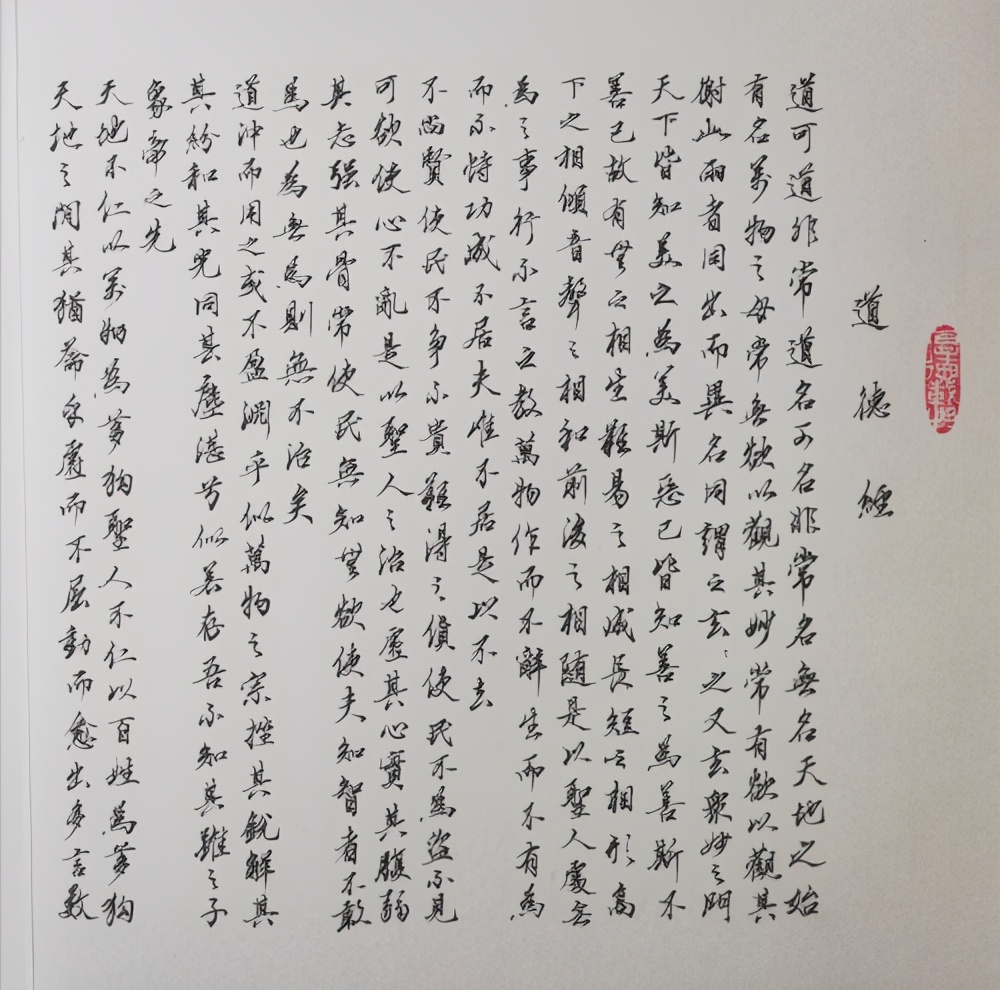 道德經
道可道非常道名可名非常名無名天地之始
有名萬物之母常無欲以觀其妙常有欲以觀其
徼此兩者同出而異名同謂之玄〻之又玄眾妙之門
天下皆知美之為美斯惡已皆知善之為善斯不
善已故有無之相生難易之相成長短之相形高
下之相傾音聲之相和前後之相隨是以聖人處無
為之事行不言之教萬物作而不辭生而不有為
而不恃功成不居夫唯不居是以不去
不尚賢使民不爭不貴難得之貨使民不為盜不見
可欲使心不亂是以聖人之治也虛其心實其腹弱
其志强其骨常使民無知無欲使夫知智者不敢
為也為無為則無不治矣
道沖而用之或不盈淵乎似萬物之宗挫其銳解其
其紛和其光同其塵湛兮似若存吾不知其誰之子
象帝之先
天地不仁以萬物為芻狗聖人不仁以百姓為芻狗
天地之間其猶乎而不屈動而愈出多言數